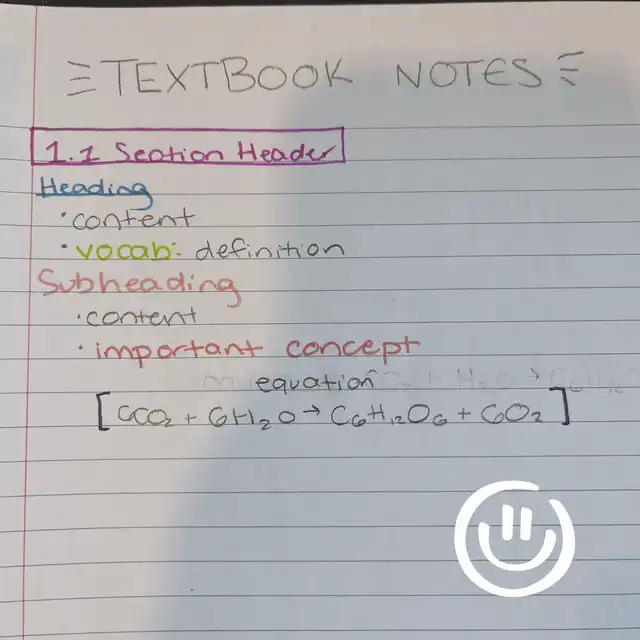 TEXTBOOK NOTES
1.1 Section Header
Heading
• content
• vocab: definition
Subheading
• content
• important concept
equation
[6CO₂ + 6H₂O → C₆H₁₂O₆ + 6O₂]